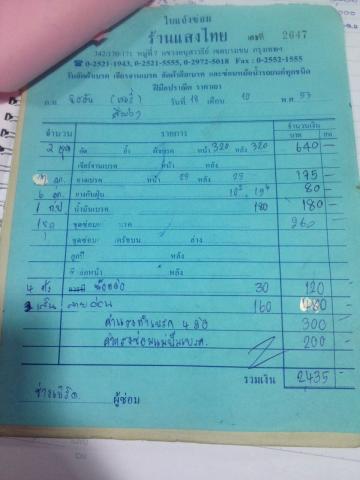 ใบแจ้งซ่อม
ร้านแสงไทย เลขที่ 2647
342/170-171 หมู่ที่ 7 แขวงอนุสาวรีย์ เขตบางเขน กรุงเทพฯ
☎ 0-2521-1943, 0-2521-5555, 0-2972-5018 Fax : 0-2552-1555
รับอัดผ้าเบรค เจียรจานเบรค และซ่อมหม้อน้ำรถยนต์ทุกชนิด
ฝีมือปราณีต ราคาเยา
วันที่ 18 เดือน 10 พ.ศ. 53
จำนวน รายการ จำนวนเงิน
บาท สต.
2 ชุด อัด ผ้าเบรค หน้า 320 หลัง 320 640 -
เจียรจานเบรค หน้า หลัง
ลูก ยางเบรค หน้า 25 หลัง 25 175
6 ลูก ยางกันฝุ่น 80
1 กป น้ำมันเบรค 180 180
ชุดซ่อม เบรค 260
1 ชุดซ่อม ครัชบน ล่าง
ลูกปืน หลัง
ซีลล้อหน้า หลัง
4 ตัว 30 120
3 เส้น สายอ่อน 160 480
ค่าแรงทำเบรค 4 ล้อ 300
ค่าแรงซ่อมแม่ปั๊มเบรค 200
รวมเงิน 2435 -
ผู้ซ่อม